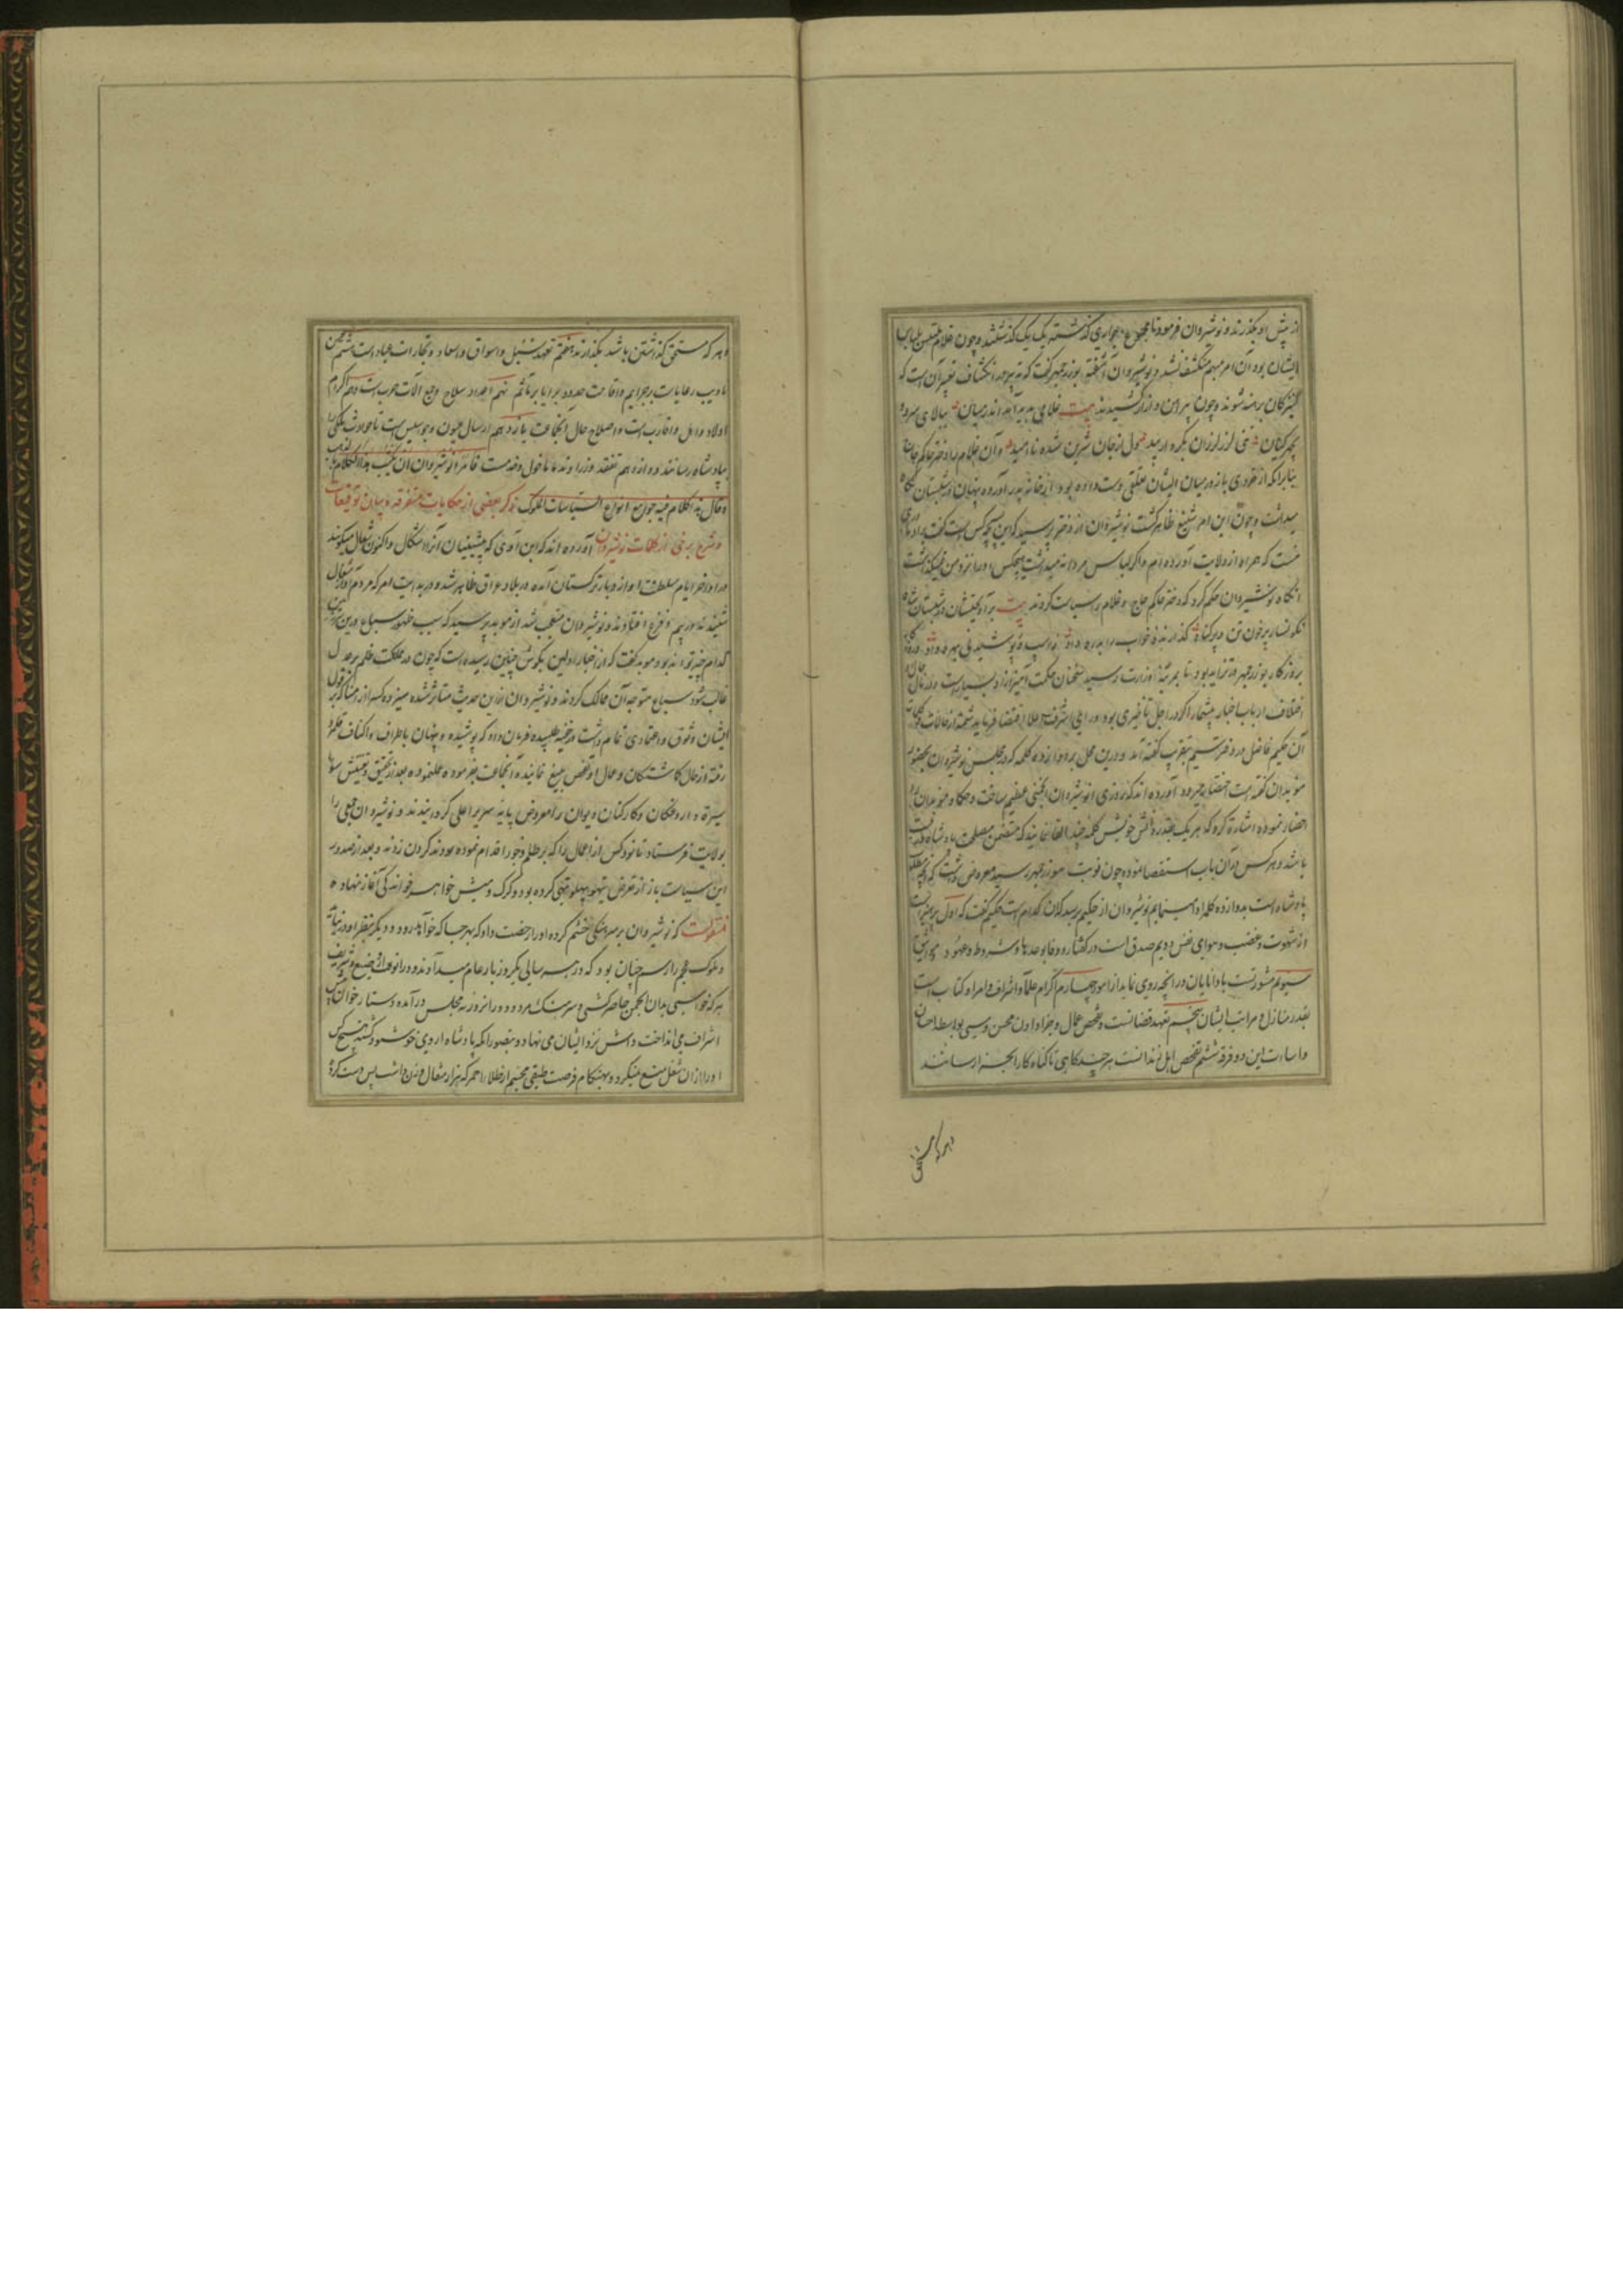 از پیش او بگذرند و نوشیروان فرمود تا مجموع جواری گذشته یک یک گذشتند و چون غلام ملتبس بلباس
ایشان بود آن امر مبهم منکشف نشد و نوشیروان آشفته بوزرجمهر گفت که تدبیر در انکشاف تعبیر آن است که
کنیزکان برهنه شوند و چون پیراهن و ازار کشیدند بیت غلامی پدید آمد اندر میان ببالای سرو و
بچهر کیان تنی لرز لرزان بکردار بید دل از جان شیرین شده ناامید و آن غلام را دختر حاکم چاچ
بنابر آنکه از خوردی باز در میان ایشان تعلقی دست داده بود از خانه پدر آورده پنهان در شبستان نگاه
میداشت و چون این امر شنیع ظاهر گشت نوشیروان از دختر پرسید که این چه کس است گفت برادر مادری
منست که همراه از ولایت آورده‌ام و اگر لباس مردانه میداشت هیچکس او را نزد من نمیگذاشت
آنگاه نوشیروان حکم کرد که دختر حاکم چاچ و غلام را سیاست کردند بیت برآویختشان در شبستان شاه
نگونسار پرخون تن و پرگناه گذارنده خواب را بدره داد ز اسپ و پوشیدنی بهره داد
روزگار بوزرجمهر در تزاید بود تا بمرتبه وزارت رسید سخنان حکمت آمیز از او بسیارست
اختلاف ارباب اخبار بیشمار اگر در اجل تأخیری بود و رای اشرف اعلا اقتضا فرماید شمه از حالات و کلمات
آن حکیم فاضل در دفتر سیم بتقریب گفته آید و درین محل بر دوازده کلمه که در مجلس نوشیروان بحضور
موبدان گفته است اختصار میرود آورده‌اند که روزی انوشیروان انجمنی عظیم ساخت و حکما و موبدان را
احضار نموده اشارة کرد که هر یک بقدر دانش خویش کلمه چند القا نمایند که متضمن مصلحت پادشاه و رعیت
باشد و هر کس در آن باب استقصا نموده چون نوبت ببوزرجمهر رسید معروض داشت که
پادشاه است بدوازده کلمه ادا مینمایم نوشیروان از حکیم پرسید که آن کدام است حکیم گفت که اول پرهیزست
از شهوت و غضب و هوای نفس دویم صدق است در گفتار و وفا بوعدها و شروط و عهود و
سیوم مشورتست با دانایان در آنچه روی نماید از امور چهارم اکرام علما و اشراف و امرا و کتاب است
بقدر منازل و مراتب ایشان پنجم تعهد قضاتست و تفحص عمال و جزا دادن محسن و مسی بواسطه احسان
و اساءت این دو فرقه ششم تفحص اهل زندانست هر چند گاهی تا گناه‌کار را بجزا رسانند
و هر که مستحق
و هر که مستحق گذاشتن باشد بگذارند هفتم تعهد سبل و اسواق و اسعار و تجارات عباد است هشتم حسن
تادیب رعایاست بر جرایم و اقامت حدود برایا بر مآثم نهم اعداد سلاح و جمع آلات حرب است دهم اکرام
اولاد و اهل و اقارب است و اصلاح حال آنجماعت یازدهم ارسال عیون و جواسیس است تا حوادث ملکی
بپادشاه رسانند دوازدهم تفقد وزرا و ندما و خول و خدمست فامر انوشیروان ان یکتب هذا الکلام بالذهب
و قال هذا کلام فیه جوامع انواع السیاسات الملوک ذکر بعضی از حکایات متفرقه و بیان توقیعات
و شرح برخی از کلمات نوشیروان آورده‌اند که ابن آوی که پیشینیان آنرا شگال و اکنون شغال میگویند
در اواخر ایام سلطنت او از دیار ترکستان آمده در بلاد عراق ظاهر شد و در بدایت امر که مردم آواز شغال
شنیدند در بیم و فزع افتادند و نوشیروان متعجب شد از موبد پرسید که سبب ظهور سباع درین سرزمین
کدام چیز تواند بود موبد گفت که از اخبار اولین بگوش چنین رسیده است که چون در مملکت ظلم بر عدل
غالب شود سباع متوجه آن ممالک گردند و نوشیروان ازین حدیث متأثر شده سیزده کس از امنا که بر قول
ایشان وثوق و اعتمادی تمام داشت در خفیه طلبیده فرمان داد که پوشیده و پنهان باطراف و اکناف قلمرو
رفته از حال گماشتگان و عمال او تفحص بلیغ نمایند و آنجماعت بفرموده عمل نموده بعد از تحقیق و تفتیش سوء
سیرة داروغگان و کارکنان دیوان را معروض پایه سریر اعلی گردانیدند و نوشیروان جمعی را
بولایت فرستاد تا نود کس از اعمال را که بر ظلم و جور اقدام نموده بودند گردن زدند و بعد از صدور
این سیاست باز از تعرض تیهو پهلو تهی کرده بود و گرگ و میش خواهر خواندگی آغاز نهاده
منقولست که نوشیروان بر سرهنگی خشم کرده او را رخصت داد که بهر جا که خواهد رود و دیگر بنظر او در نیاید
و ملوک عجم را رسم چنان بود که در هر سالی یکروز بار عام میدادند و در آنروز وضیع و شریف
هر که خواستی بدان انجمن حاضر گشتی و سرهنگ مردود در آنروز به مجلس در آمده دستار خوان پیش
اشراف می‌انداخت و آش نزد ایشان می نهاد و بتصور آنکه پادشاه از وی خوشنود گشته هیچکس
او را از آن شغل منع نمیکرد و بهنگام فرصت طبقی مجسم از طلاء احمر که هزار مثقال وزن داشت پس دست کرد